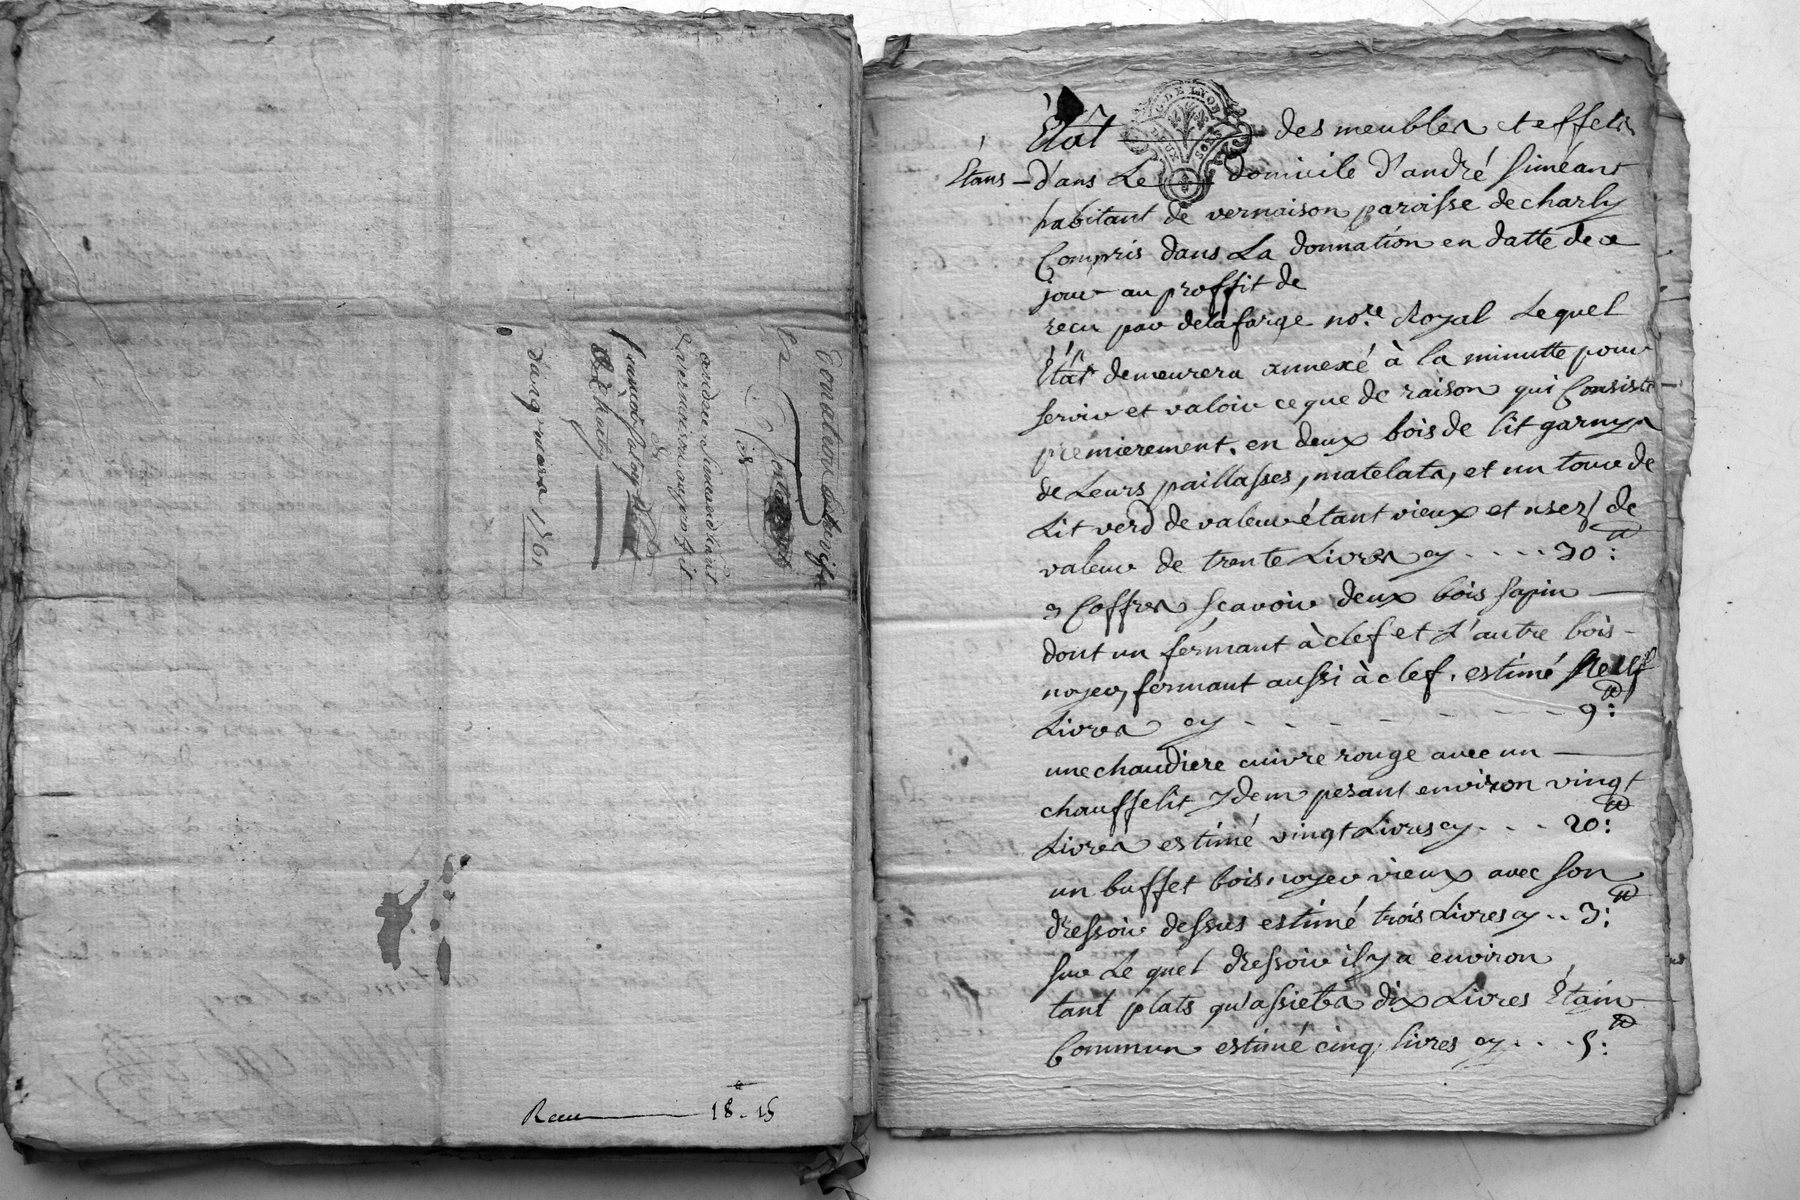 Donation
de
andré Simeand
de vernaison
de
du 19 mars 1761
Recu 18.15
G. DE LYON
DEUX SOLS
État des meubles et effets
Étans dans Le domicile d'andré Siméant
habitant de vernaison paroisse de charly
Compris dans La donnation en datte de ce
jour au proffit de
recu par delafarge no.re Royal Lequel
État demeurera annexé à la minutte pour
servir et valoir ce que de raison qui Consiste
premierement, en deux bois de lit garnys
de Leurs paillasses, matelats, et un tour de
Lit verd de valeur étant vieux et usez / de
valeur de trente Livres cy .... 30:₶
3 Coffres scavoir deux bois sapin
dont un fermant à clef et L'autre bois
noyer, fermant aussi à clef, estimé Neuf
Livres cy - - - - - - - 9:₶
une chaudiere cuivre rouge avec un
chauffelit Idem pesant environ vingt
Livres estimé vingt Livres cy ... 20:₶
un buffet bois noyer vieux avec son
dressoir dessus estimé trois Livres cy .. 3:₶
sur Le quel dressoir il y a environ
tant plats qu'assietes dix Livres Étain
Commun estimé cinq livres cy .... 5:₶